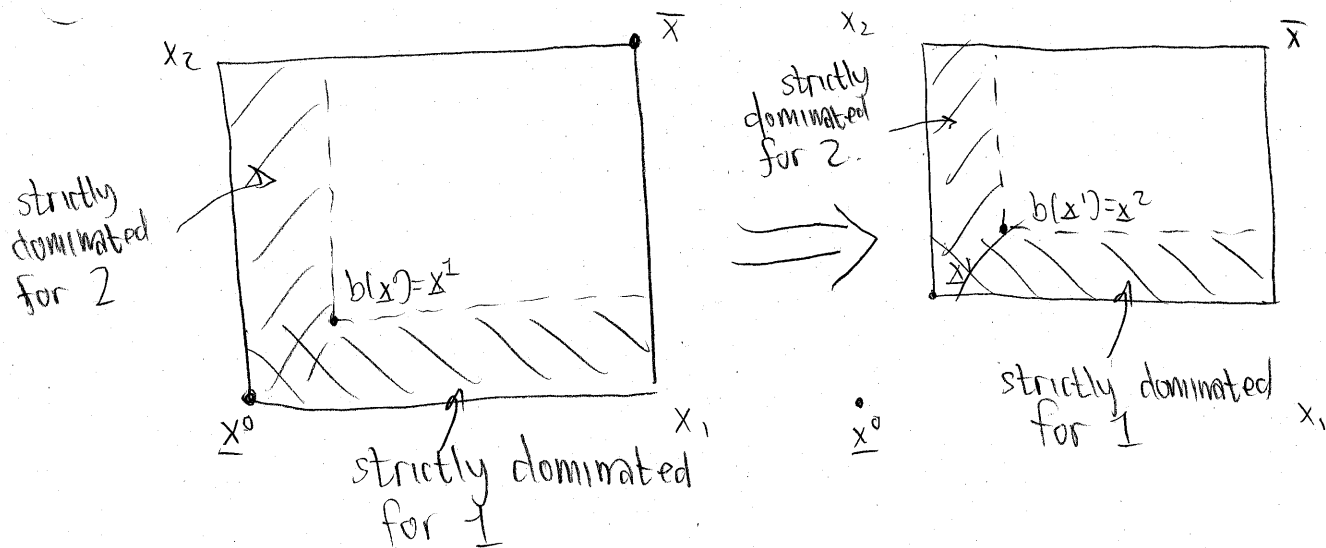 x̄
x₂
strictly
dominated
for 2
b(x̲)=x̲¹
x̲⁰
x₁
strictly dominated
for 1
x₂
x̄
strictly
dominated
for 2.
b(x̲¹)=x̲²
x̲¹
x̲⁰
strictly dominated
for 1
x₁